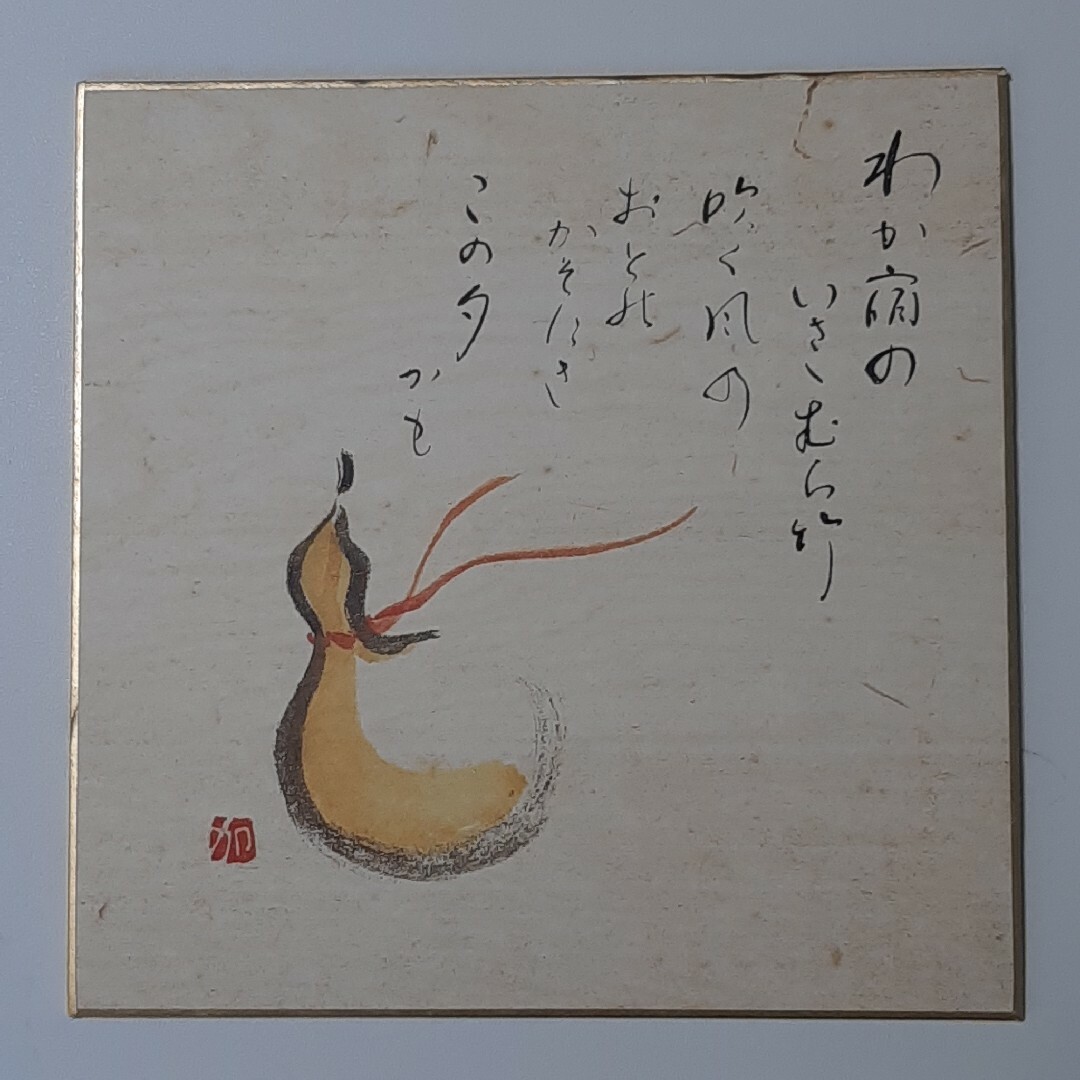 わか宿の
いさゝむら竹
吹く風の
おとの
かそけき
この夕
かも